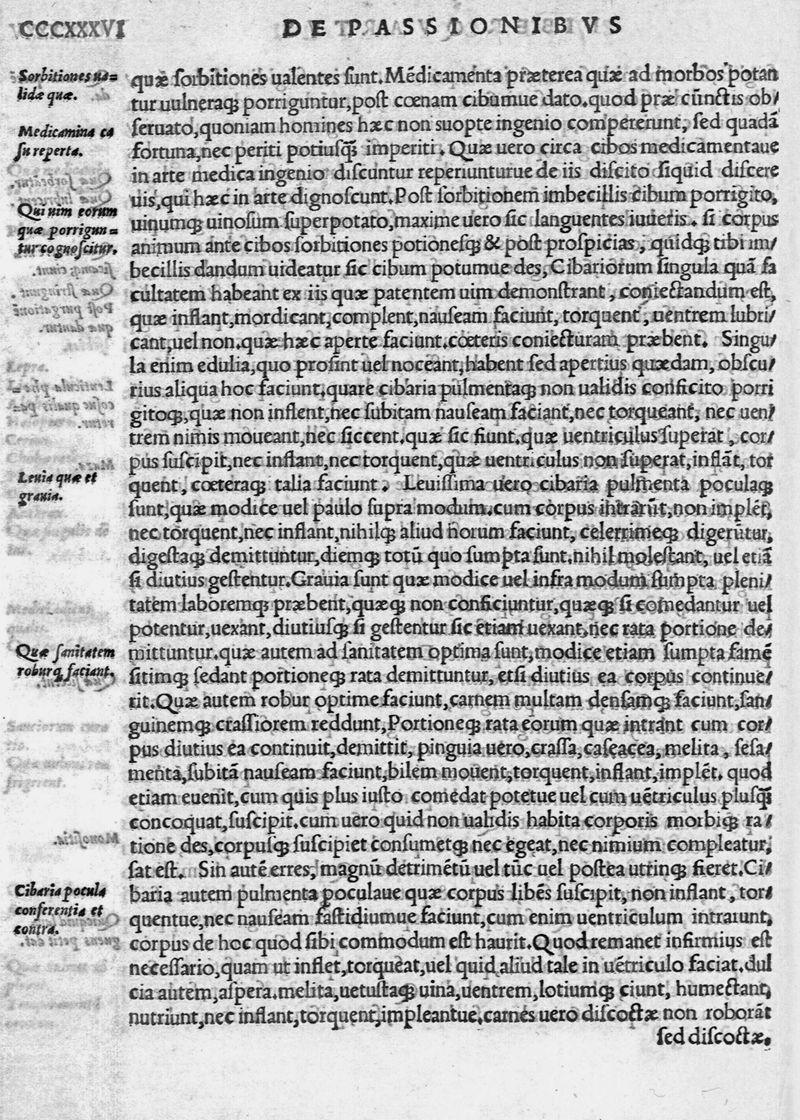 CCCXXXVI
DE PASSIONIBVS
Sorbitiones ua=
lidæ quæ.
Medicamina ca
su reperta.
Qui uim eorum
quæ porrigun=
tur cognoscitur.
Leuia quæ et
grauia.
Quæ sanitatem
roburq; faciant.
Cibaria pocula
conferentia et
contra.
quæ sorbitiones ualentes sunt. Médicamenta præterea quæ ad morbos potan
tur uulneraq; porriguntur, post cœnam cibumue dato. quod præ cūnctis ob/
seruato, quoniam homines hæc non suopte ingenio compererunt, sed quadā
fortuna, nec periti potiusq̃ imperiti. Quæ uero circa cibos medicamentaue
in arte medica ingenio discuntur reperiunturue de iis discito siquid discere
uis, qui hæc in arte dignoscunt. Post sorbitionem imbecillis cibum porrigito,
uinumq; uinosum superpotato, maxime uero sic languentes iuueris. si corpus
animum ante cibos sorbitiones potionesq; & post prospicias, quidq; tibi im/
becillis dandum uideatur sic cibum potumue des, Cibariorum singula quā fa
cultatem habeant ex iis quæ patentem uim demonstrant, coniectandum est,
quæ inflant, mordicant, complent, nauseam faciunt, torquent, uentrem lubri/
cant, uel non. quæ hæc aperte faciunt. cœteris coniecturam præbent. Singu/
la enim edulia, quo prosint uel noceant, habent sed apertius quædam, obscu/
rius aliqua hoc faciunt. quare cibaria pulmentaq; non ualidis conficito porri
gitoq;, quæ non inflent, nec subitam nauseam faciant, nec torqueant, nec uen/
trem nimis moueant, nec siccent. quæ sic fiunt. quæ uentriculus superat, cor/
pus suscipit, nec inflant, nec torquent, quæ uentriculus non superat, inflāt, tor
quent, cœteraq; talia faciunt. Leuissima uero cibaria pulmenta poculaq;
sunt, quæ modice uel paulo supra modum. cum corpus intrarūt, non implēt,
nec torquent, nec inflant, nihilq; aliud horum faciunt, celerrimeq; digerūtur,
digestaq; demittuntur, diemq; totū quo sumpta sunt. nihil molestant, uel etiā
si diutius gestentur. Grauia sunt quæ modice uel infra modum sumpta pleni/
tatem laboremq; præbent, quæq; non conficiuntur, quæq; si comedantur uel
potentur, uexant, diutiusq; si gestentur sic etiam uexant, nec rata portione de/
mittuntur. quæ autem ad sanitatem optima sunt, modice etiam sumpta famē
sitimq; sedant portioneq; rata demittuntur, etsi diutius ea corpus continue/
rit. Quæ autem robur optime faciunt, carnem multam densamq; faciunt, san/
guinemq; crassiorem reddunt, Portioneq; rata eorum quæ intrant cum cor/
pus diutius ea continuit, demittit, pinguia uero, crassa, caseacea, melita, sesa/
menta, subitā nauseam faciunt, bilem mouent, torquent, inflant, implēt. quod
etiam euenit, cum quis plus iusto comedat potetue uel cum uētriculus plusq̃
concoquat, suscipit. cum uero quid non ualidis habita corporis morbiq; ra/
tione des, corpusq; suscipiet consumetq; nec egeat, nec nimium compleatur,
sat est. Sin autē erres, magnū detrimētū uel tūc uel postea utrinq; fieret. Ci/
baria autem pulmenta poculaue quæ corpus libēs suscipit, non inflant, tor/
quentue, nec nauseam fastidiumue faciunt, cum enim uentriculum intrarunt,
corpus de hoc quod sibi commodum est haurit. Quod remanet infirmius est
necessario, quam ut inflet, torqueat, uel quid aliud tale in uētriculo faciat. dul
cia autem, aspera. melita, uetustaq; uina, uentrem, lotiumq; ciunt, humectant,
nutriunt, nec inflant, torquent, impleantue. carnes uero discoctæ non roborāt
sed discoctæ.